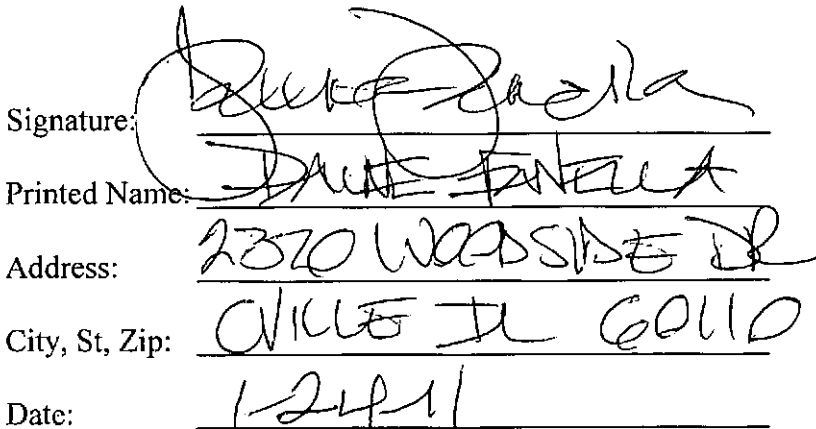 Signature:
Printed Name: FANELLA
Address: 2320 WOODSIDE DR
City, St, Zip: CVILLE IL 60110
Date: 1-24-11